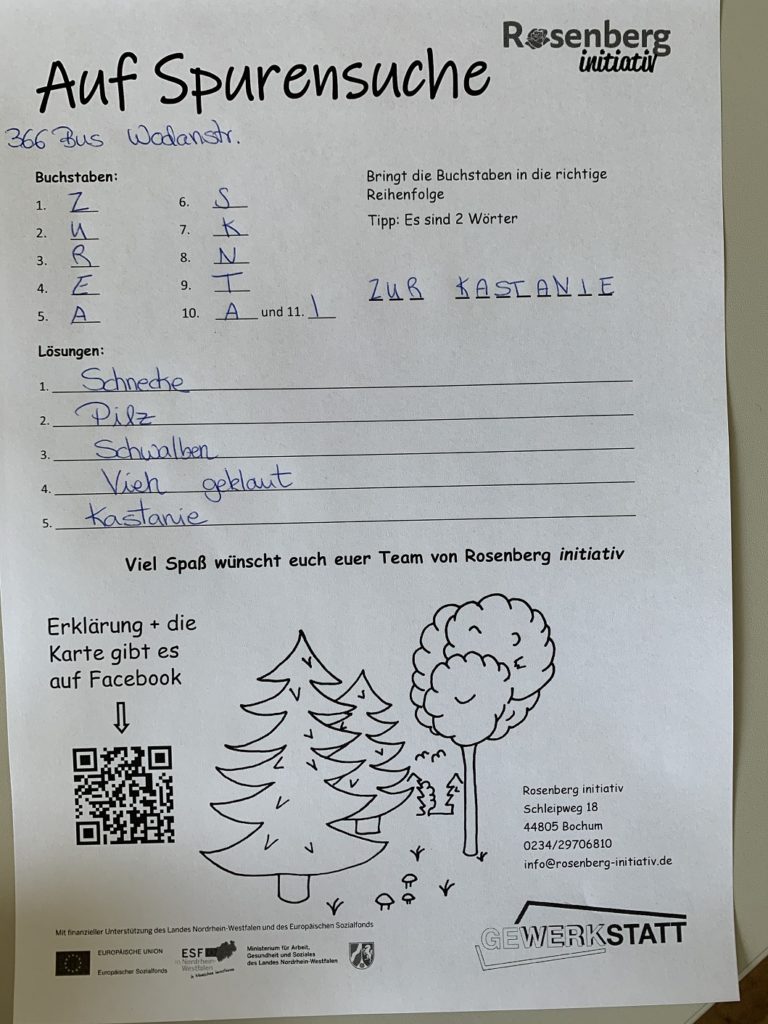 Rosenberg
initiativ
Auf Spurensuche
366 Bus Wodanstr.
Buchstaben:
1. Z
2. U
3. R
4. E
5. A
6. S
7. K
8. N
9. T
10. A und 11. I
Bringt die Buchstaben in die richtige
Reihenfolge
Tipp: Es sind 2 Wörter
ZUR KASTANIE
Lösungen:
1. Schnecke
2. Pilz
3. Schwalben
4. Vieh geklaut
5. Kastanie
Viel Spaß wünscht euch euer Team von Rosenberg initiativ
Erklärung + die
Karte gibt es
auf Facebook
Rosenberg initiativ
Schleipweg 18
44805 Bochum
0234/29706810
info@rosenberg-initiativ.de
Mit finanzieller Unterstützung des Landes Nordrhein-Westfalen und des Europäischen Sozialfonds
EUROPÄISCHE UNION
Europäischer Sozialfonds
ESF
in Nordrhein-
Westfalen
Ministerium für Arbeit,
Gesundheit und Soziales
des Landes Nordrhein-Westfalen
GEWERKSTATT